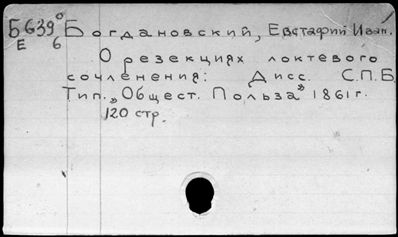 Б639° Богдановский, Евстафий Иван.
Е 6
О резекциях локтевого
сочленения: Дисс. С.П.Б
Тип. „Общест. Польза” 1861 г.
120 стр.